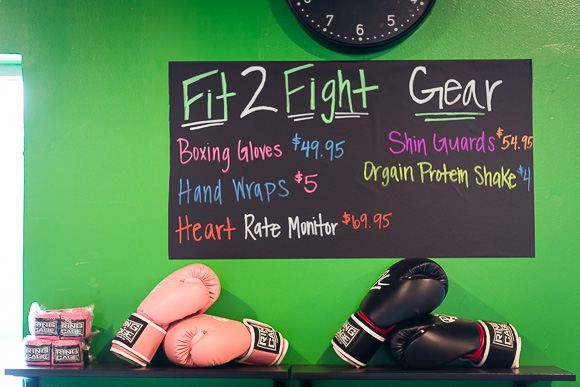 7 6 5 4
Fit 2 Fight Gear
Boxing Gloves $49.95
Hand Wraps $5
Heart Rate Monitor $69.95
Shin Guards $54.95
Orgain Protein Shake $4
RING TO CAGE
RING TO CAGE
RING TO CAGE
RING TO CAGE
RING TO CAGE